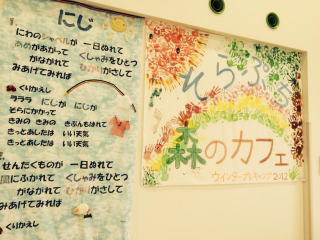 にじ
にわのシャベルが 一日ぬれて
あめがあがって くしゃみをひとつ
くもがながれて ひかりがさして
みあげてみれば
くりかえし
ラララ にじが にじが
そらにかかって
きみの きみの きぶんもはれて
きっとあしたは いい天気
きっとあしたは いい天気
せんたくものが 一日ぬれて
風にふかれて くしゃみをひとつ
くもがながれて ひかりがさして
みあげてみれば
くりかえし
そらぷち
森のカフェ
ウインタープレキャンプ2012